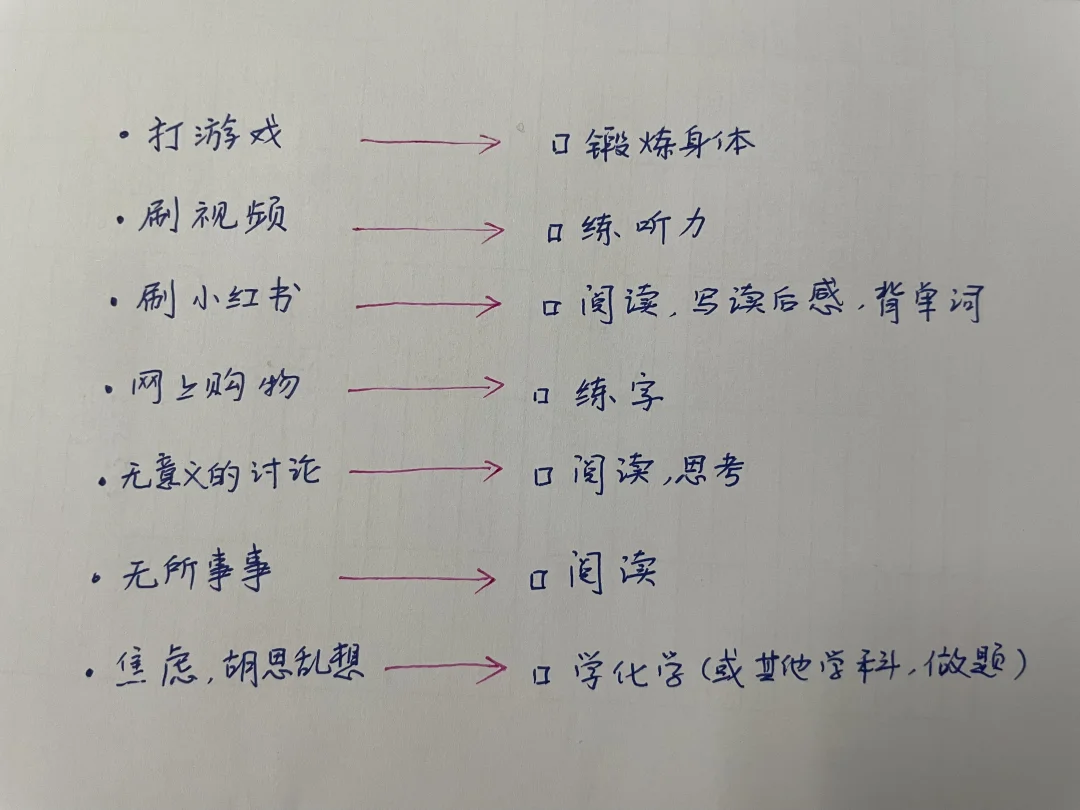 • 打游戏 → □ 锻炼身体
• 刷视频 → □ 练听力
• 刷小红书 → □ 阅读,写读后感,背单词
• 网上购物 → □ 练字
• 无意义的讨论 → □ 阅读,思考
• 无所事事 → □ 阅读
• 焦虑,胡思乱想 → □ 学化学(或其他学科,做题)